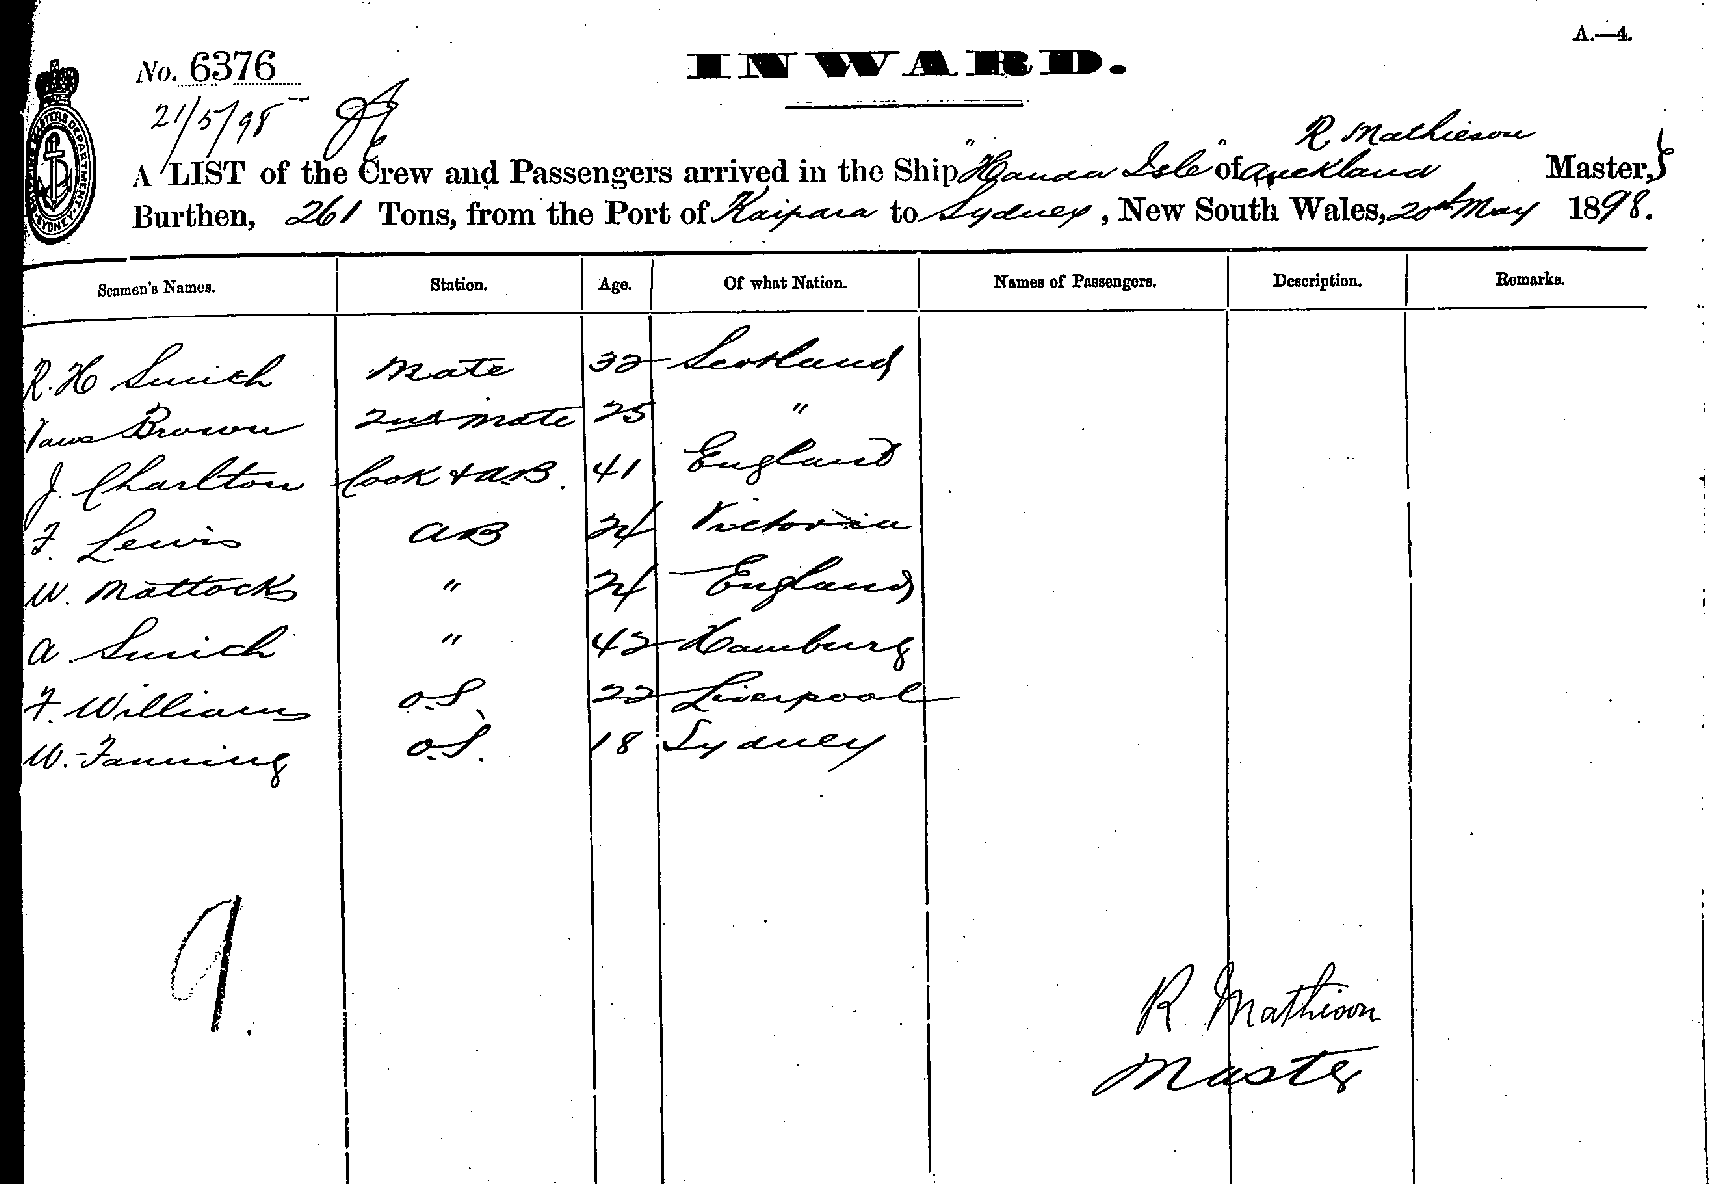 A.—4.
No. 6376
INWARD.
21/5/98
R Mathieson
A LIST of the Crew and Passengers arrived in the Ship "Handa Isle" of Auckland Master,
Burthen, 261 Tons, from the Port of Kaipara to Sydney, New South Wales, 20th May 1898.
Seamen's Names. Station. Age. Of what Nation. Names of Passengers. Description. Remarks.
R. H Smith Mate 32 Scotland
Brown 2nd Mate 25 "
J. Charlton Cook & AB. 41 England
F. Lewis AB 24 Victoria
W. Mattock " 24 England
A Smith " 42 Hamburg
F. Williams O.S. 22 Liverpool
W. Fanning O.S. 18 Sydney
9.
R Mathison
Master